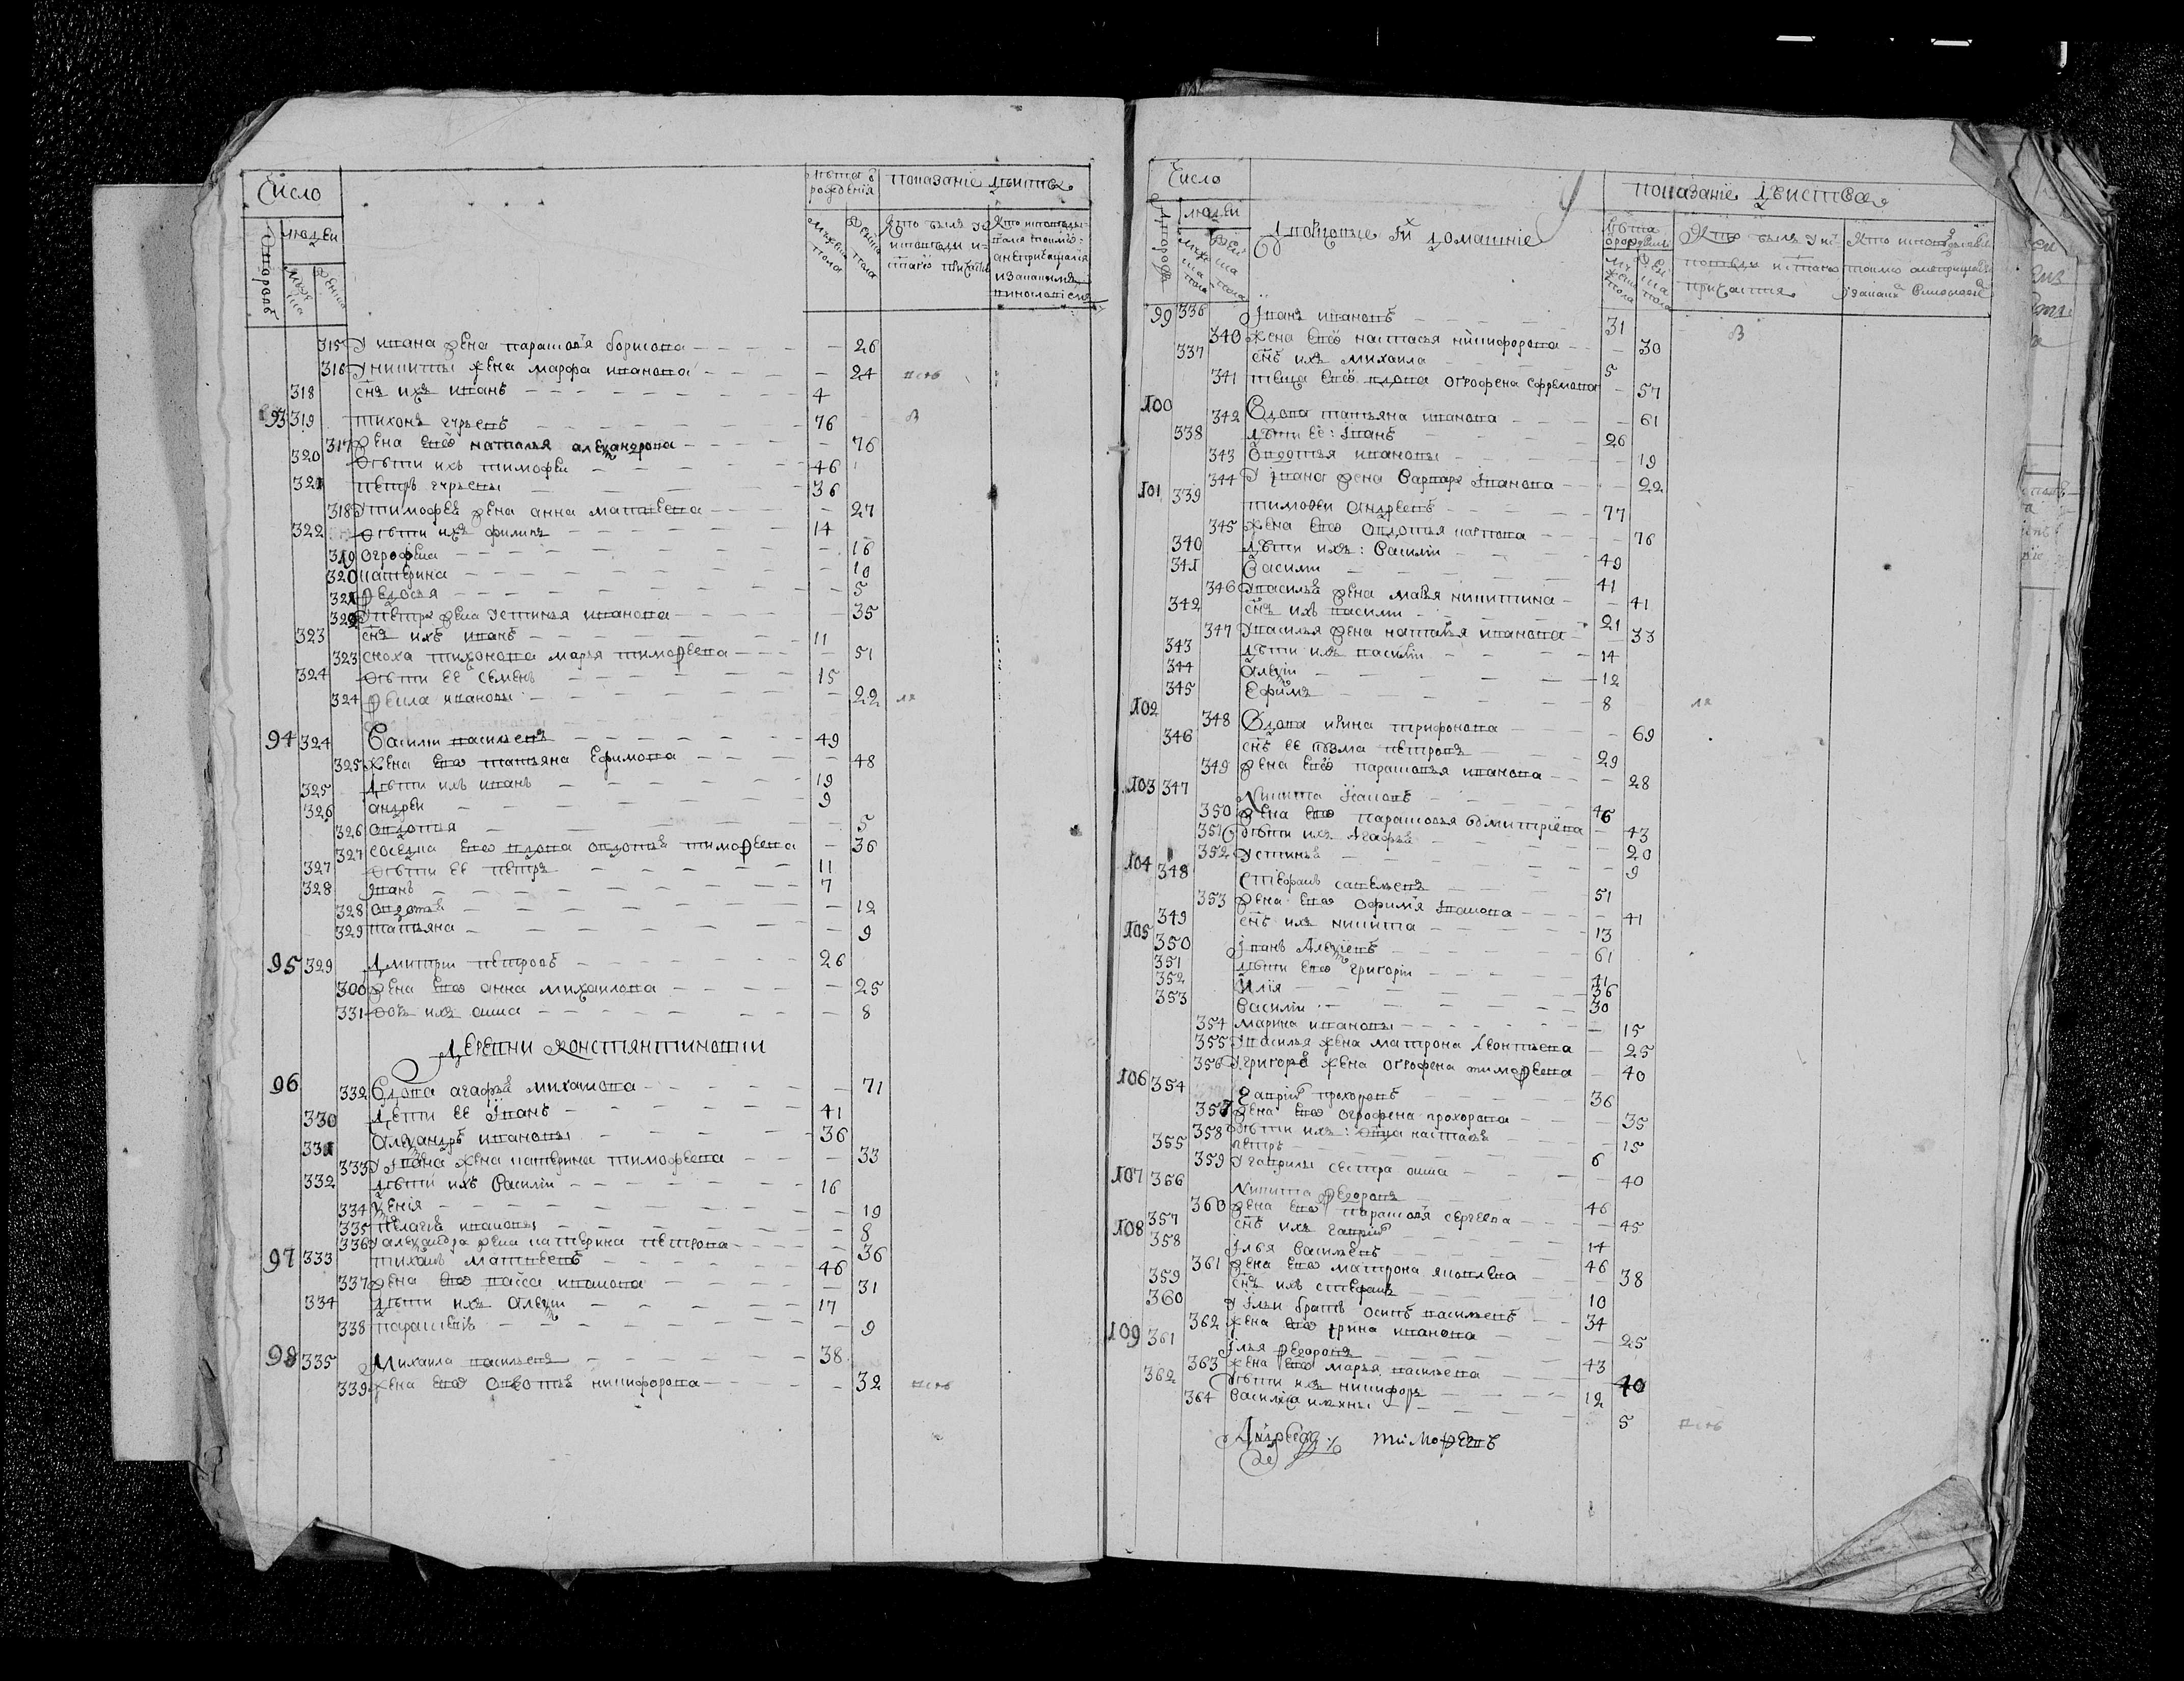 Число
лѣта ѿ рожденія
показаніе дѣиства
дворовъ
людеи
мужеска
женска
мужеска пола
женска пола
Кто былъ у исповѣди и с̃таго причастія
315 У ивана жена парасковія борисова — 26
316 У никиты жена марфа иванова — 24
318 сн̃ъ ихъ иванъ 4
93 319 тихонъ гурьевъ 76
317 жена ево наталья александрова — 76
320 дѣти ихъ тимофеи 46
321 петръ гурьевы 36
318 У тимофея жена анна матвеева — 27
322 дѣти ихъ филипъ 14
319 огрофена — 16
320 катерина — 10
321 федосья — 5
322 У петра жена устинья иванова — 35
323 сн̃ъ ихъ иванъ 11
323 сноха тихонова марья тимофеева — 51
324 дѣти ее семенъ 15
324 фекла ивановы — 22
94 324 Василии васильевъ 49
325 жена ево татьяна ефимова — 48
325 дѣти ихъ иванъ 19
326 андреи 9
326 авдотья — 5
327 соседка ево вдова авдотья тимофеева — 36
327 дѣти ее петръ 11
328 иванъ 7
328 авдотья — 12
329 татьяна — 9
95 329 Дмитрии петровъ 26
300 жена ево анна михаилова — 25
331 дочь ихъ анна — 8
Деревни Константиновки
96 332 Вдова агафья михаилова — 71
330 Дети ее Іванъ 41
331 Александръ ивановы 36
333 У Івана жена катерина тимофеева — 33
332 Дѣти ихъ Василии 16
334 Ксенія — 19
335 пелагея ивановы — 8
336 У александра жена катерина петрова — 36
97 333 тихонъ матвеевъ 46
337 жена ево васса иванова — 31
334 Дѣти ихъ Алексіи 17
338 парасковія — 9
98 335 Михаила васильевъ 38
339 жена ево авдотья никифорова — 32
Число
дворовъ
людеи
Дворовые и их домашніе
лѣта ѿ рожденія
показаніе дѣиства
99 336 Іванъ ивановъ 31
340 жена ево настасья никифорова — 30
337 сн̃ъ ихъ михаила 5
341 теща ево вдова огрофена ефремова — 57
100 342 Вдова татьяна иванова — 61
338 дѣти ее: Іванъ 26
343 Авдотья ивановы — 19
344 У Івана жена Варвара Іванова — 22
101 339 тимофеи Андреевъ 77
345 жена ево авдотья карпова — 76
340 дѣти ихъ: Василіи 49
341 Василии 41
346 У василья жена марья никитина — 41
342 сн̃ъ ихъ василии 21
347 У василья жена наталья иванова — 33
343 дѣти ихъ василіи 14
344 алексіи 12
345 Ефимъ 8
102 348 Вдова ирина трифонова — 69
346 сн̃ъ ее козма петровъ 29
349 жена ево парасковья иванова — 28
103 347 Никита Исаковъ 46
350 жена ево парасковья дмитріева — 43
351 дѣти ихъ Агафья — 20
352 Устинья — 9
104 348 Стефанъ савельевъ 51
353 жена ево офимія Іванова — 41
349 сн̃ъ ихъ никита 13
105 350 Іванъ Алексіевъ 61
351 дѣти ево григоріи 41
352 Илія 36
353 василіи 30
354 марина ивановы — 15
355 У василья жена матрона леонтьева — 25
356 У григорья жена огрофена тимофеева — 40
106 354 Гаврило прохоровъ 36
357 жена ево огрофена прохорова — 35
358 дѣти ихъ: настасья — 15
355 петръ 6
359 У гаврилы сестра анна — 40
107 366 Никита федоровъ 46
360 жена ево парасковія сергеева — 45
357 сн̃ъ ихъ гаврило 14
108 358 Илья васильевъ 46
361 жена ево матрона яковлева — 38
359 сн̃ъ ихъ стефанъ 10
360 У Ильи братъ осипъ васильевъ 34
362 жена ево ірина иванова — 25
109 361 Илья федоровъ 43
363 жена ево марья васильева — 40
362 дѣти ихъ никифоръ 12
364 Василиса ильины 5
Андреи тимофеевъ